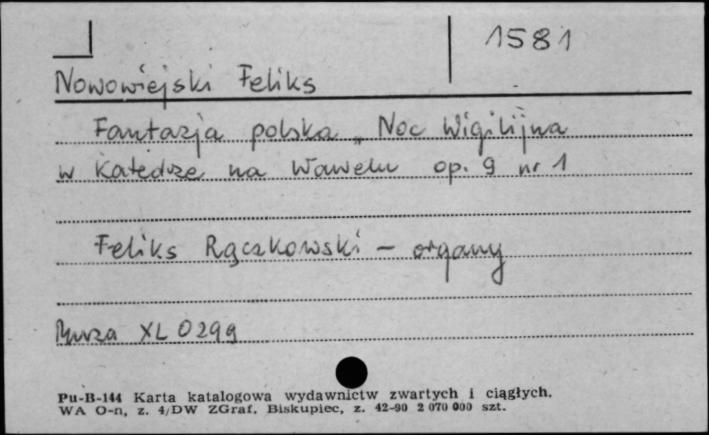 1581
Nowowiejski Feliks
Fantazja polska „Noc Wigilijna
w Katedrze na Wawelu op. 9 nr 1
Feliks Rączkowski – organy
Muza XL 0299
Pu-B-144 Karta katalogowa wydawnictw zwartych i ciągłych.
WA O-n, z. 4/DW ZGraf. Biskupiec, z. 42-90 2 070 000 szt.